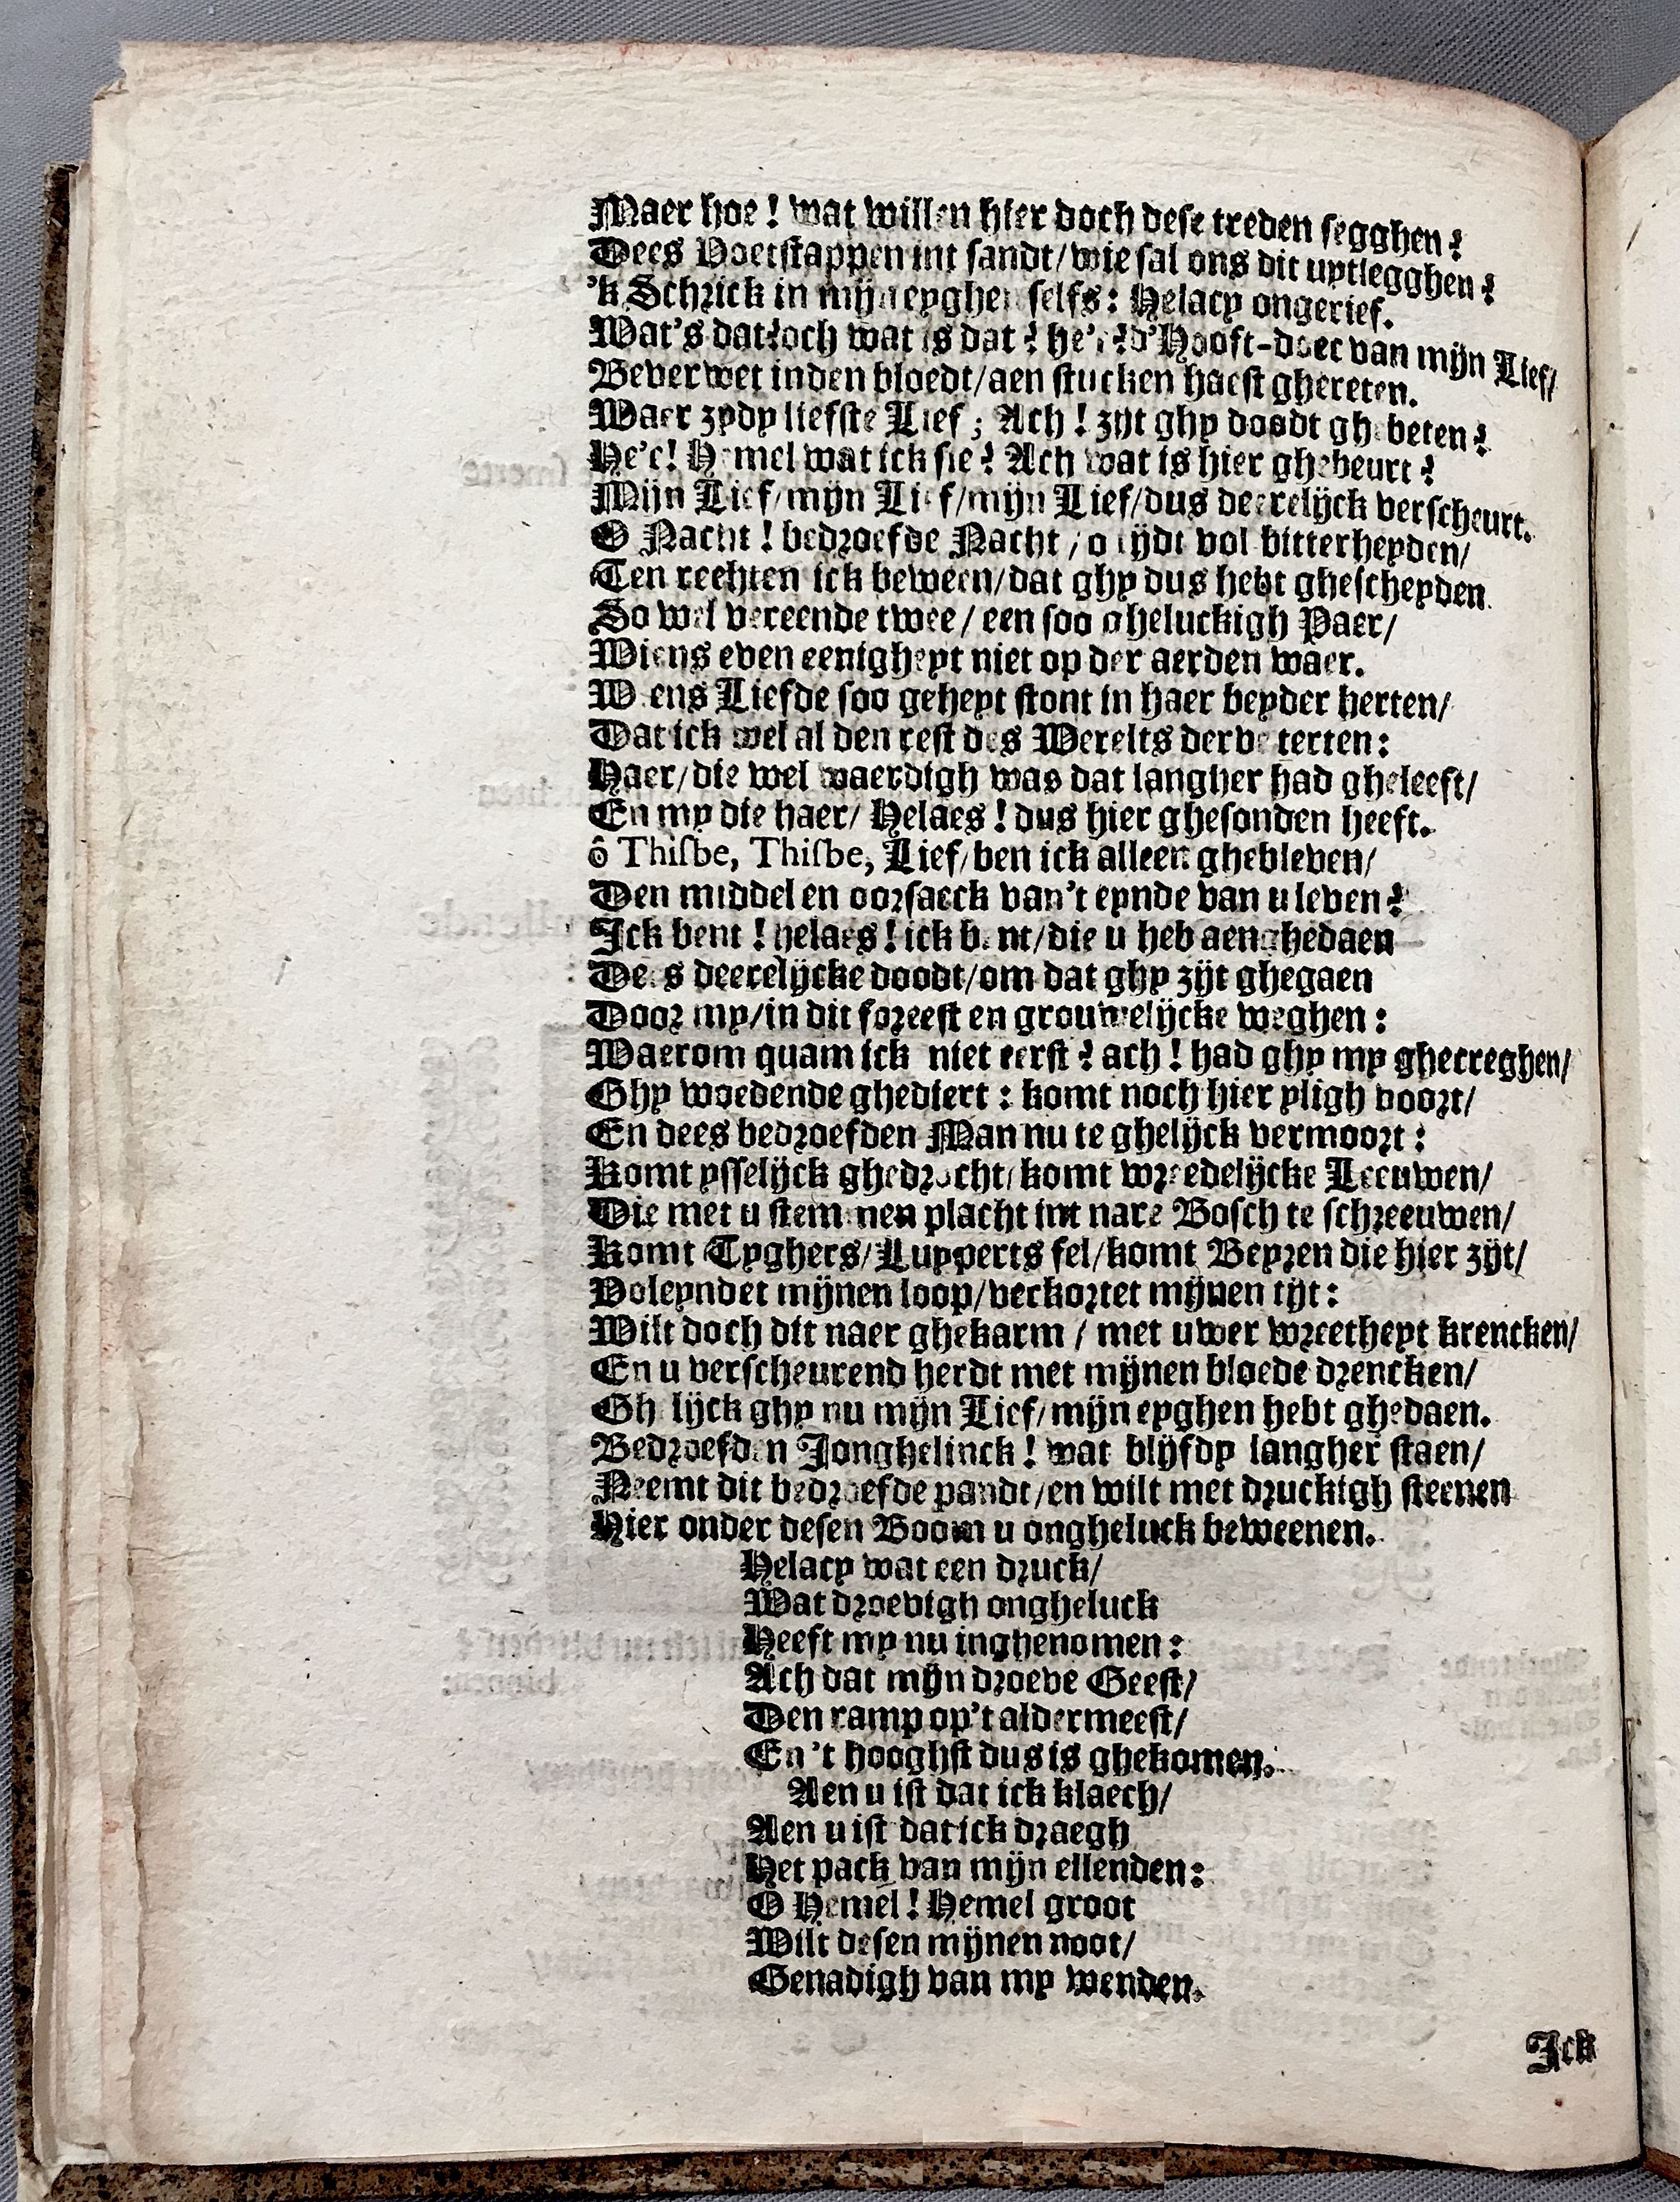 Maer hoe! wat willen hier doch dese treden segghen?
Dees Voetstappen int sandt/wie sal ons dit uytlegghen?
'k Schrick in mijn eyghen selfs: Helacy ongerief.
Wat's dat?och wat is dat? he'c?d'Hooft-doec van mijn Lief/
Beverwet inden bloedt/aen stucken haest ghereten.
Waer zydy liefste Lief; Ach! zijt ghy doodt ghebeten?
He'c! Hemel wat ick sie? Ach wat is hier ghebeurt?
Mijn Lief/mijn Lief/mijn Lief/dus deerelijck verscheurt.
O Nacht! bedroefde Nacht/o tijdt vol bitterheyden/
Ten rechten ick beween/dat ghy dus hebt ghescheyden.
So wel vereende twee/ een soo gheluckigh Paer/
Wiens even eenigheyt niet op der aerden waer.
Wiens Liefde soo geheyt stont in haer beyder herten/
Dat ick wel al den rest des Werelts derve terten:
Haer/die wel waerdigh was dat langher had gheleeft/
En my die haer/ Helaes! dus hier ghesonden heeft.
ô Thisbe, Thisbe, Lief/ben ick alleen ghebleven/
Den middel en oorsaeck van't eynde van u leven?
Ick bent! helaes! ick bent/die u heb aenghedaen
Dees deerelijcke doodt/om dat ghy zijt ghegaen
Door my/in dit foreest en grouwelijcke weghen:
Waerom quam ick niet eerst? ach! had ghy my ghecreghen/
Ghy woedende ghediert: komt noch hier yligh voort/
En dees bedroefden Man nu te ghelijck vermoort:
Komt ysselijck ghedrocht/komt wreedelijcke Leeuwen/
Die met u stemmen placht int nare Bosch te schreeuwen/
Komt Tyghers/Luypperts fel/komt Beyren die hier zijt/
Voleyndet mijnen loop/verkortet mijnen tijt:
Wilt doch dit naer ghekarm/ met uwer wreetheyt krencken/
En u verscheurend herdt met mijnen bloede drencken/
Ghelijck ghy nu mijn Lief/mijn eyghen hebt ghedaen.
Bedroefden Jonghelinck! wat blijfdy langher staen/
Neemt dit bedroefde pandt/en wilt met druckigh steenen
Hier onder desen Boom u ongheluck beweenen.
Helacy wat een druck/
Wat droevigh ongheluck
Heeft my nu inghenomen:
Ach dat mijn droeve Geest/
Den ramp op't aldermeest/
En 't hooghst dus is ghekomen.
Aen u ist dat ick klaech/
Aen u ist dat ick draegh
Het pack van mijn ellenden:
O Hemel! Hemel groot
Wilt desen mijnen noot/
Genadigh van my wenden.
Ick